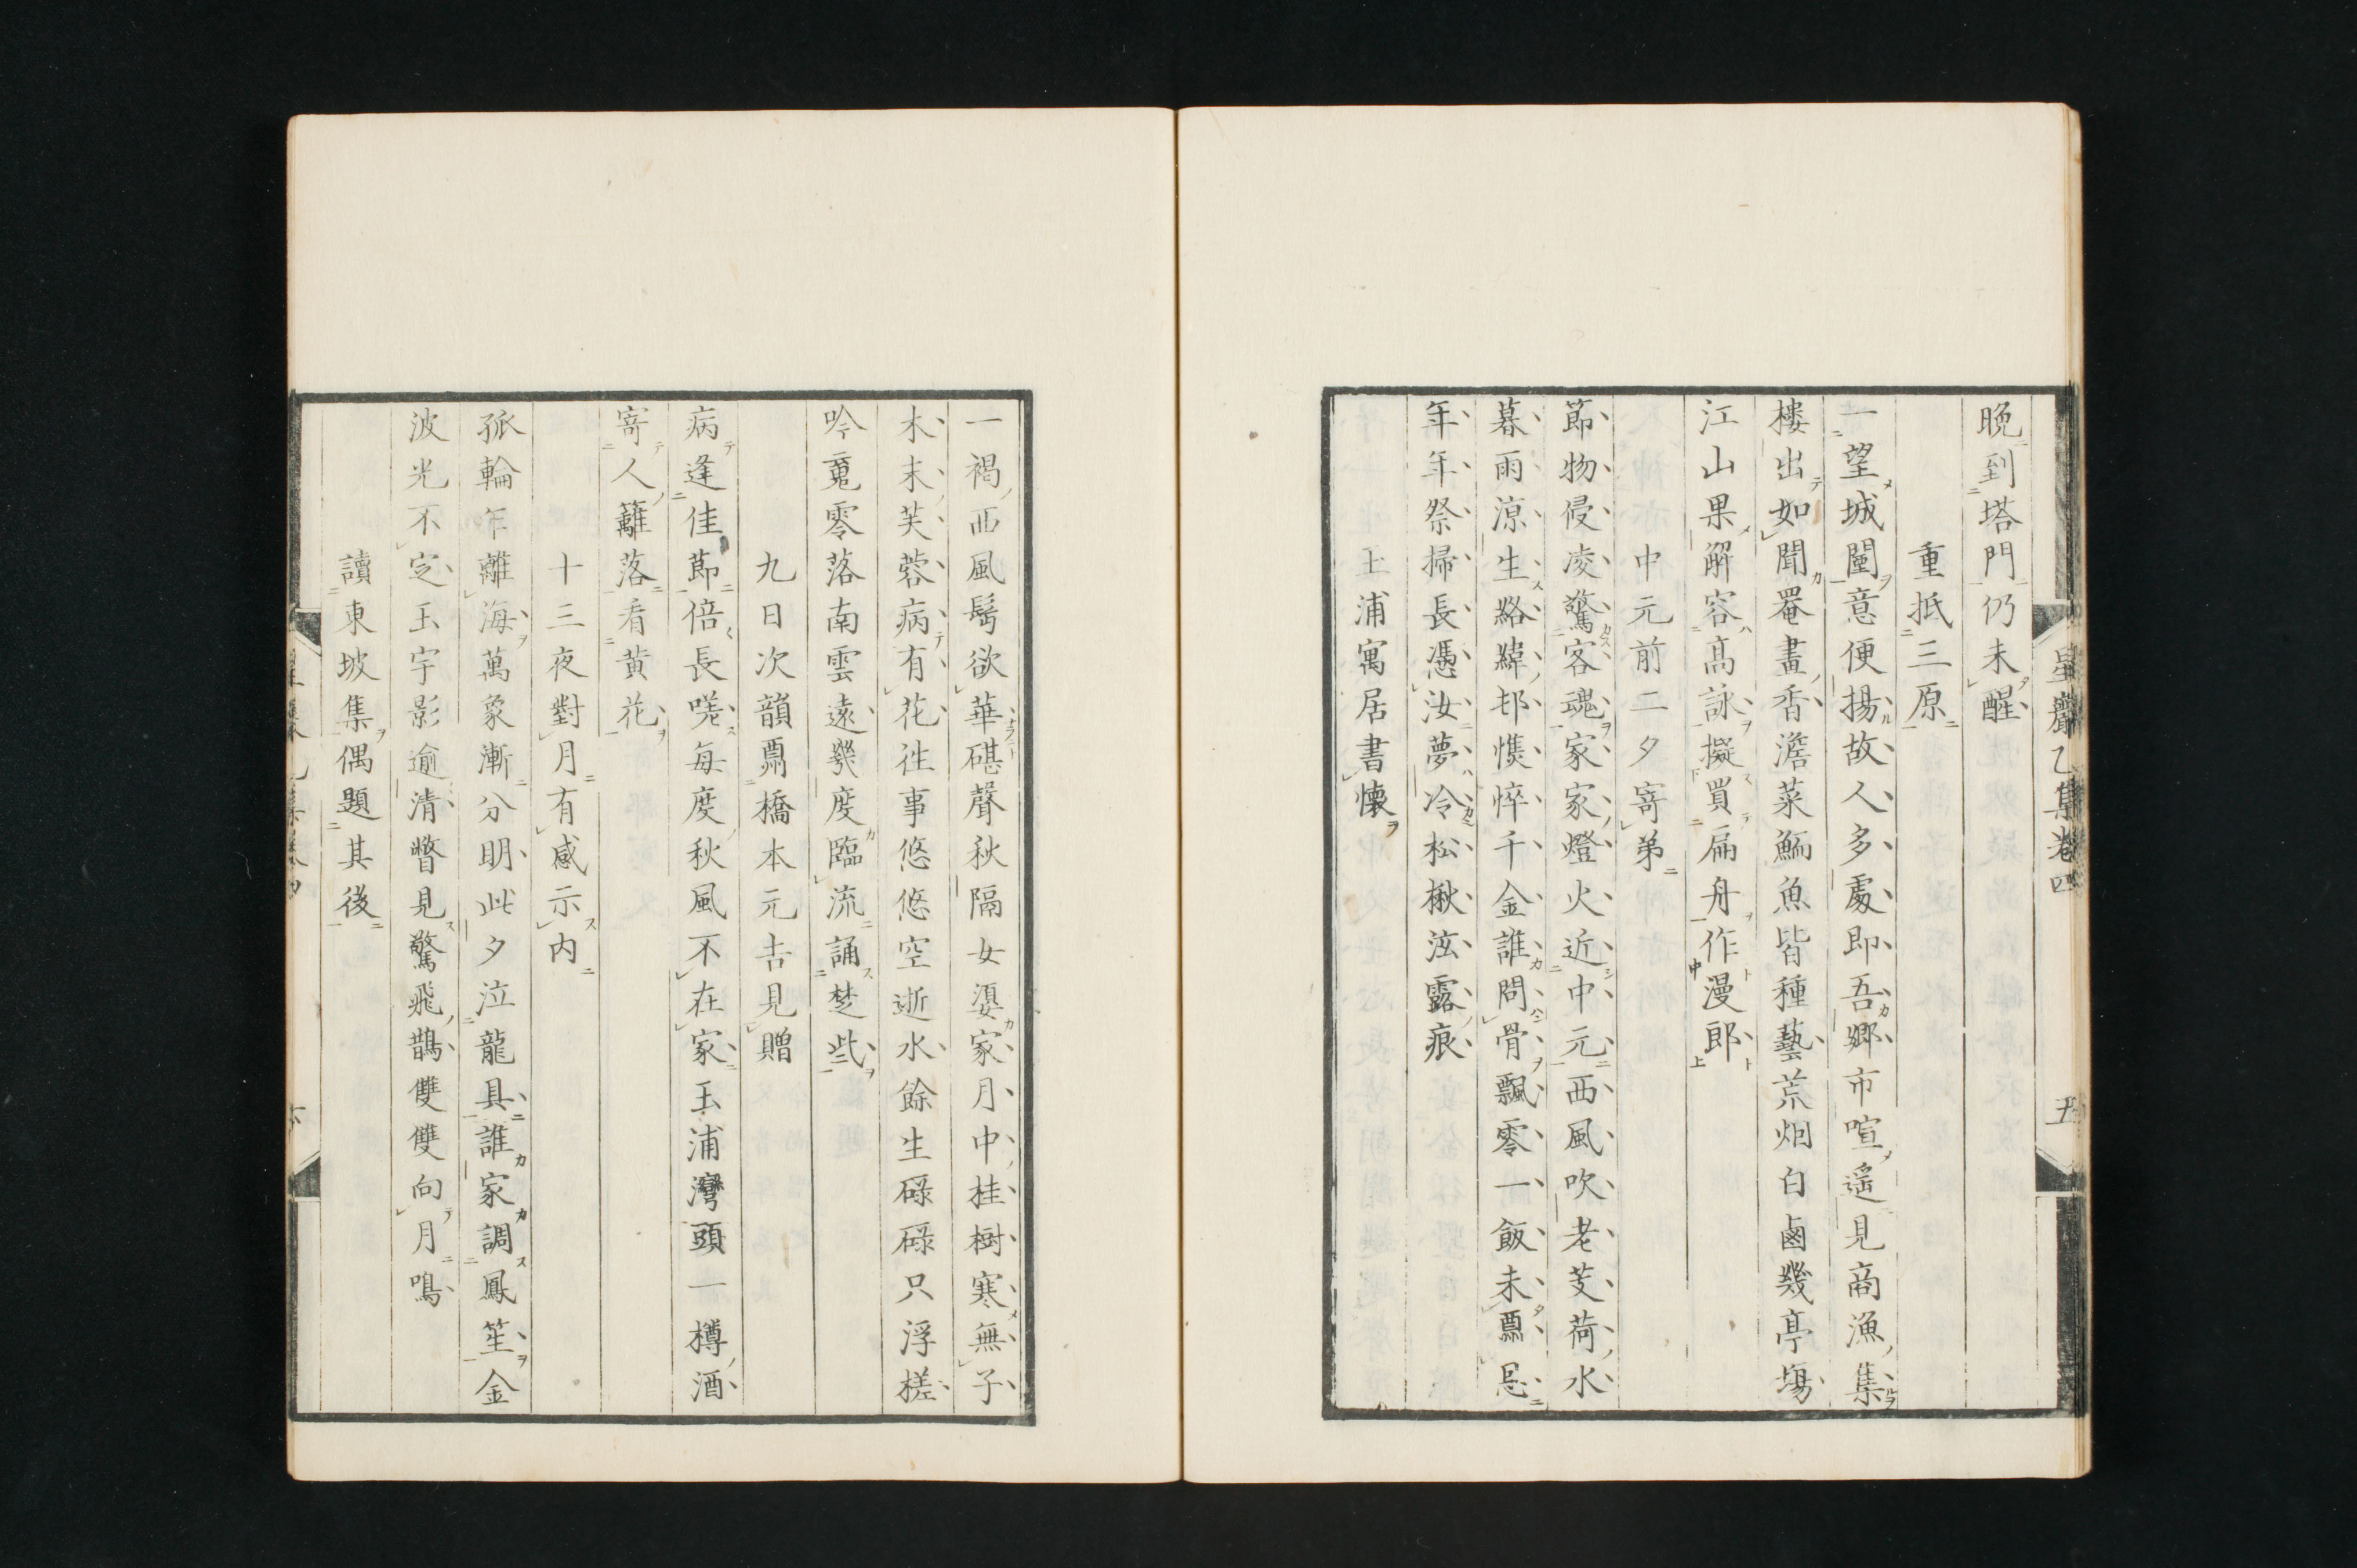 星巖乙集卷四 五
晩到塔門仍未醒
重抵三原
一望城闉意便揚故人多處即吾郷市喧遥見商漁集
樓出如聞罨畫香澹菜鮞魚皆種藝荒烟白鹵幾亭塲
江山果解容髙詠擬買扁舟作漫郎
中元前二夕寄弟
節物侵凌驚客魂家家燈火近中元西風吹老芰荷水
暮雨凉生絡緯邨憔悴千金誰問骨飄零一飯未酬恩
年年祭掃長憑汝夢冷松楸泫露痕
玉浦寓居書懐
一褐西風髩欲華碪聲秋隔女嬃家月中桂樹寒無子
木末芙蓉病有花徃事悠悠空逝水餘生碌碌只浮槎
吟䰟零落南雲遠幾度臨流誦楚些
九日次韻橋本元吉見贈
病逢佳莭倍長嗟毎度秋風不在家玉浦灣頭一樽酒
寄人籬落看黄花
十三夜對月有感示内
孤輪乍離海萬象漸分明此夕泣龍具誰家調鳳笙金
波光不定玉宇影逾清瞥見驚飛鵲雙雙向月鳴
讀東坡集偶題其後